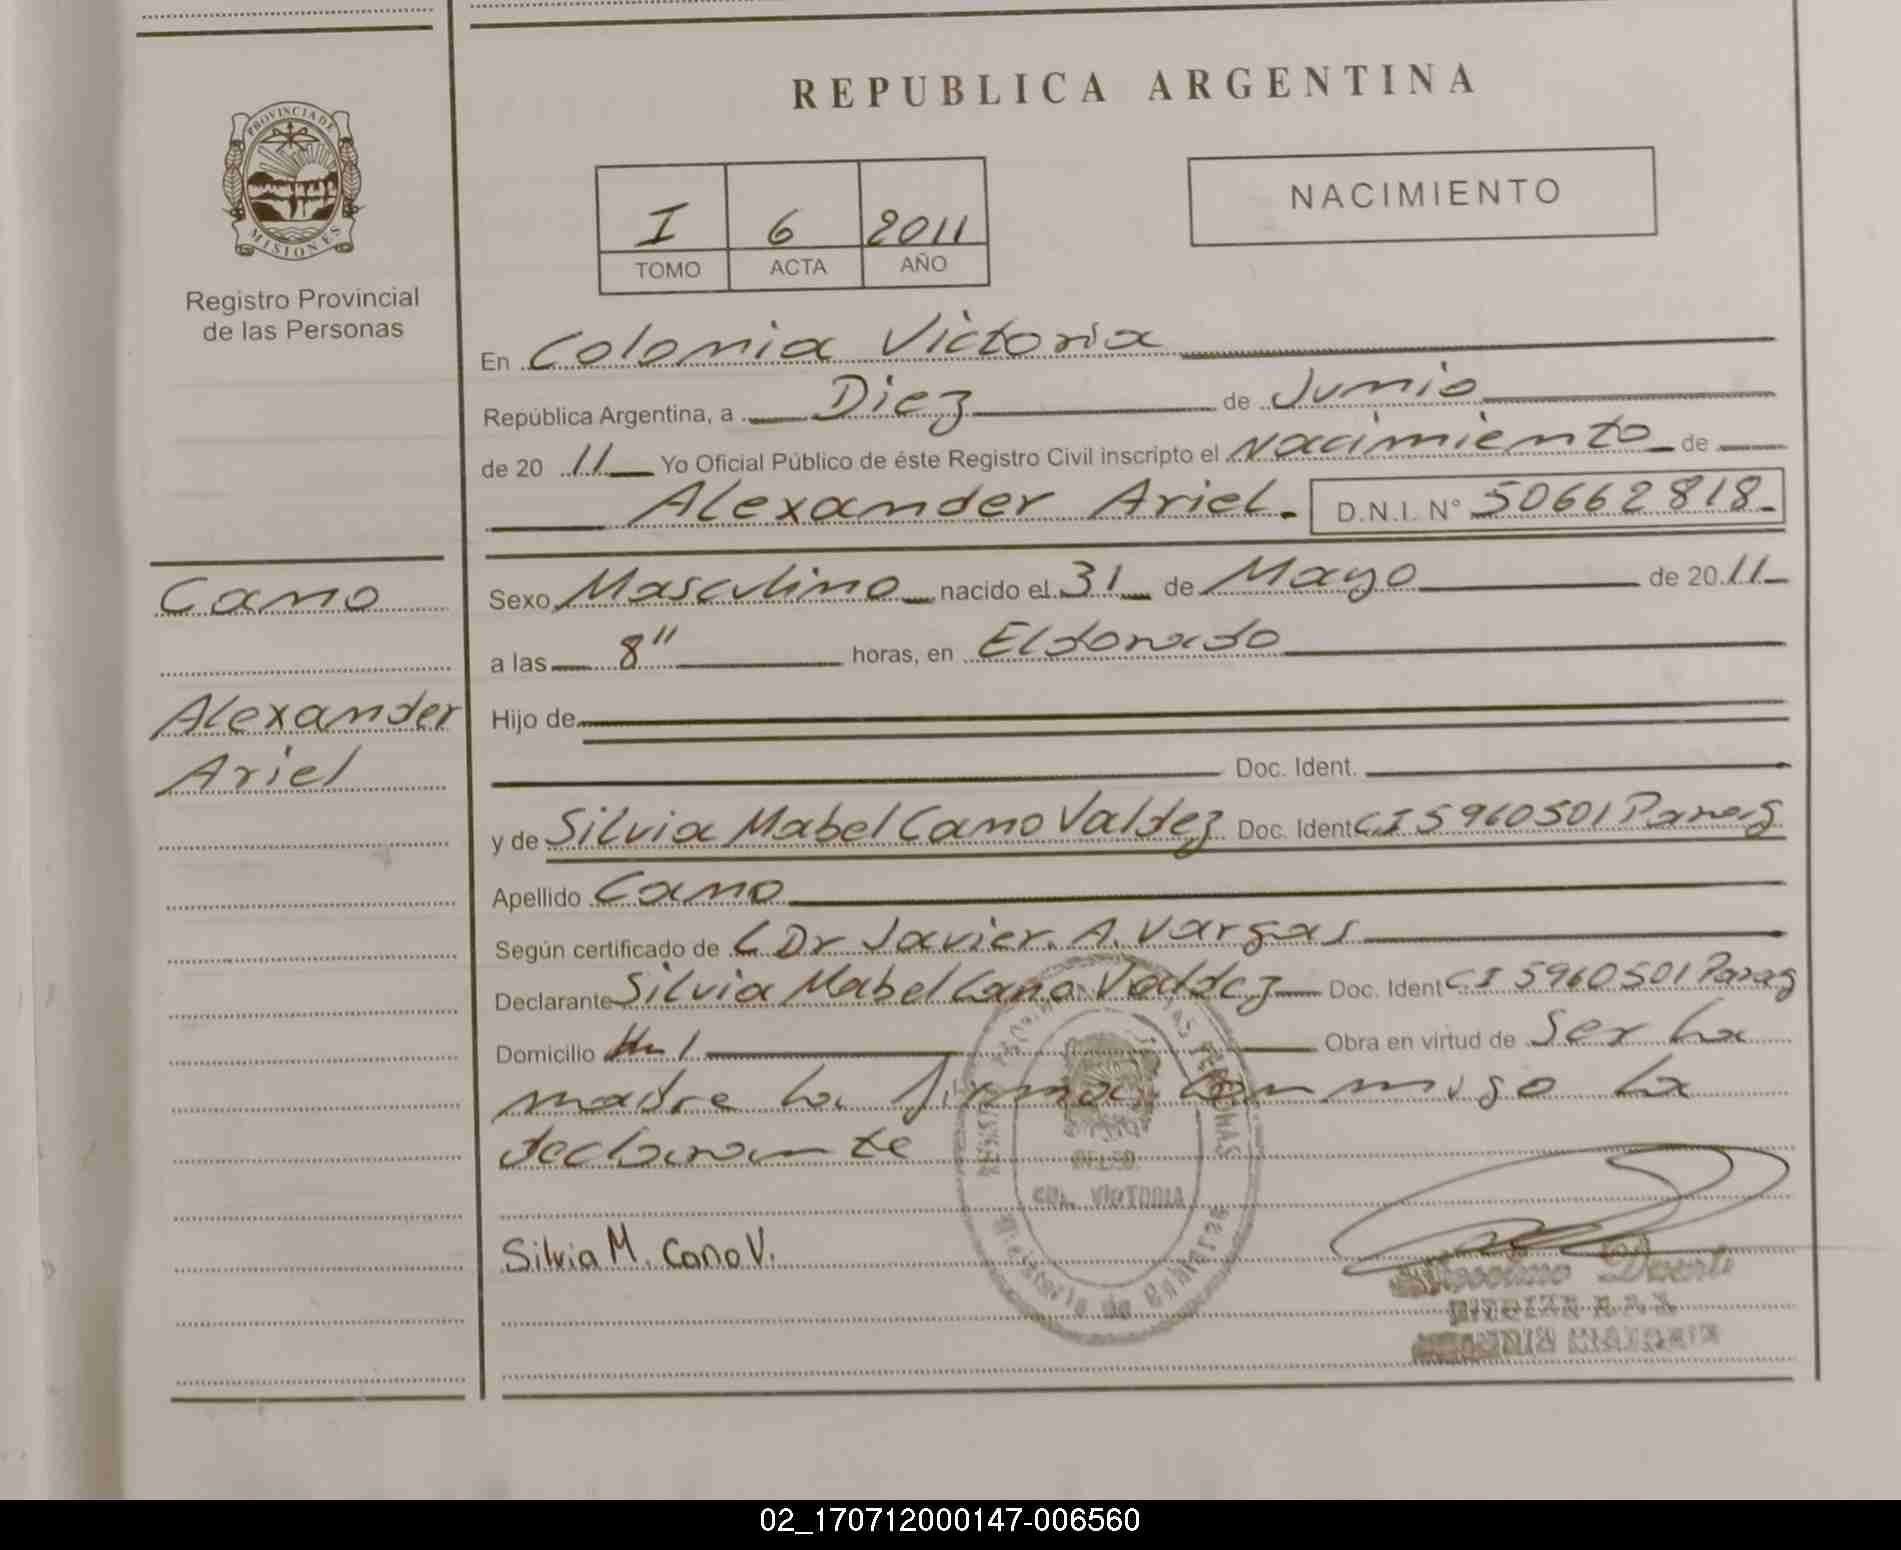 REPUBLICA ARGENTINA
PROVINCIA DE
MISIONES
Registro Provincial
de las Personas
I 6 2011
TOMO ACTA AÑO
NACIMIENTO
En Colonia Victoria
República Argentina, a Diez de Junio
de 20 11 Yo Oficial Público de éste Registro Civil inscripto el Nacimiento de
Alexander Ariel. D.N.I. N° 50662818
Cano
Alexander
Ariel
Sexo Masculino nacido el 31 de Mayo de 20 11
a las 8" horas, en Eldorado
Hijo de
Doc. Ident.
y de Silvia Mabel Cano Valdez Doc. Ident CI 5960501 Parag
Apellido Cano
Según certificado de Dr Javier. A. Vargas
Declarante Silvia Mabel Cano Valdez Doc. Ident CI 5960501 Parag
Domicilio Obra en virtud de Ser La
madre La firma conmigo La
declarante
COL. VICTORIA
Ministerio de Gobierno
Silvia M. Cano V.
02_170712000147-006560